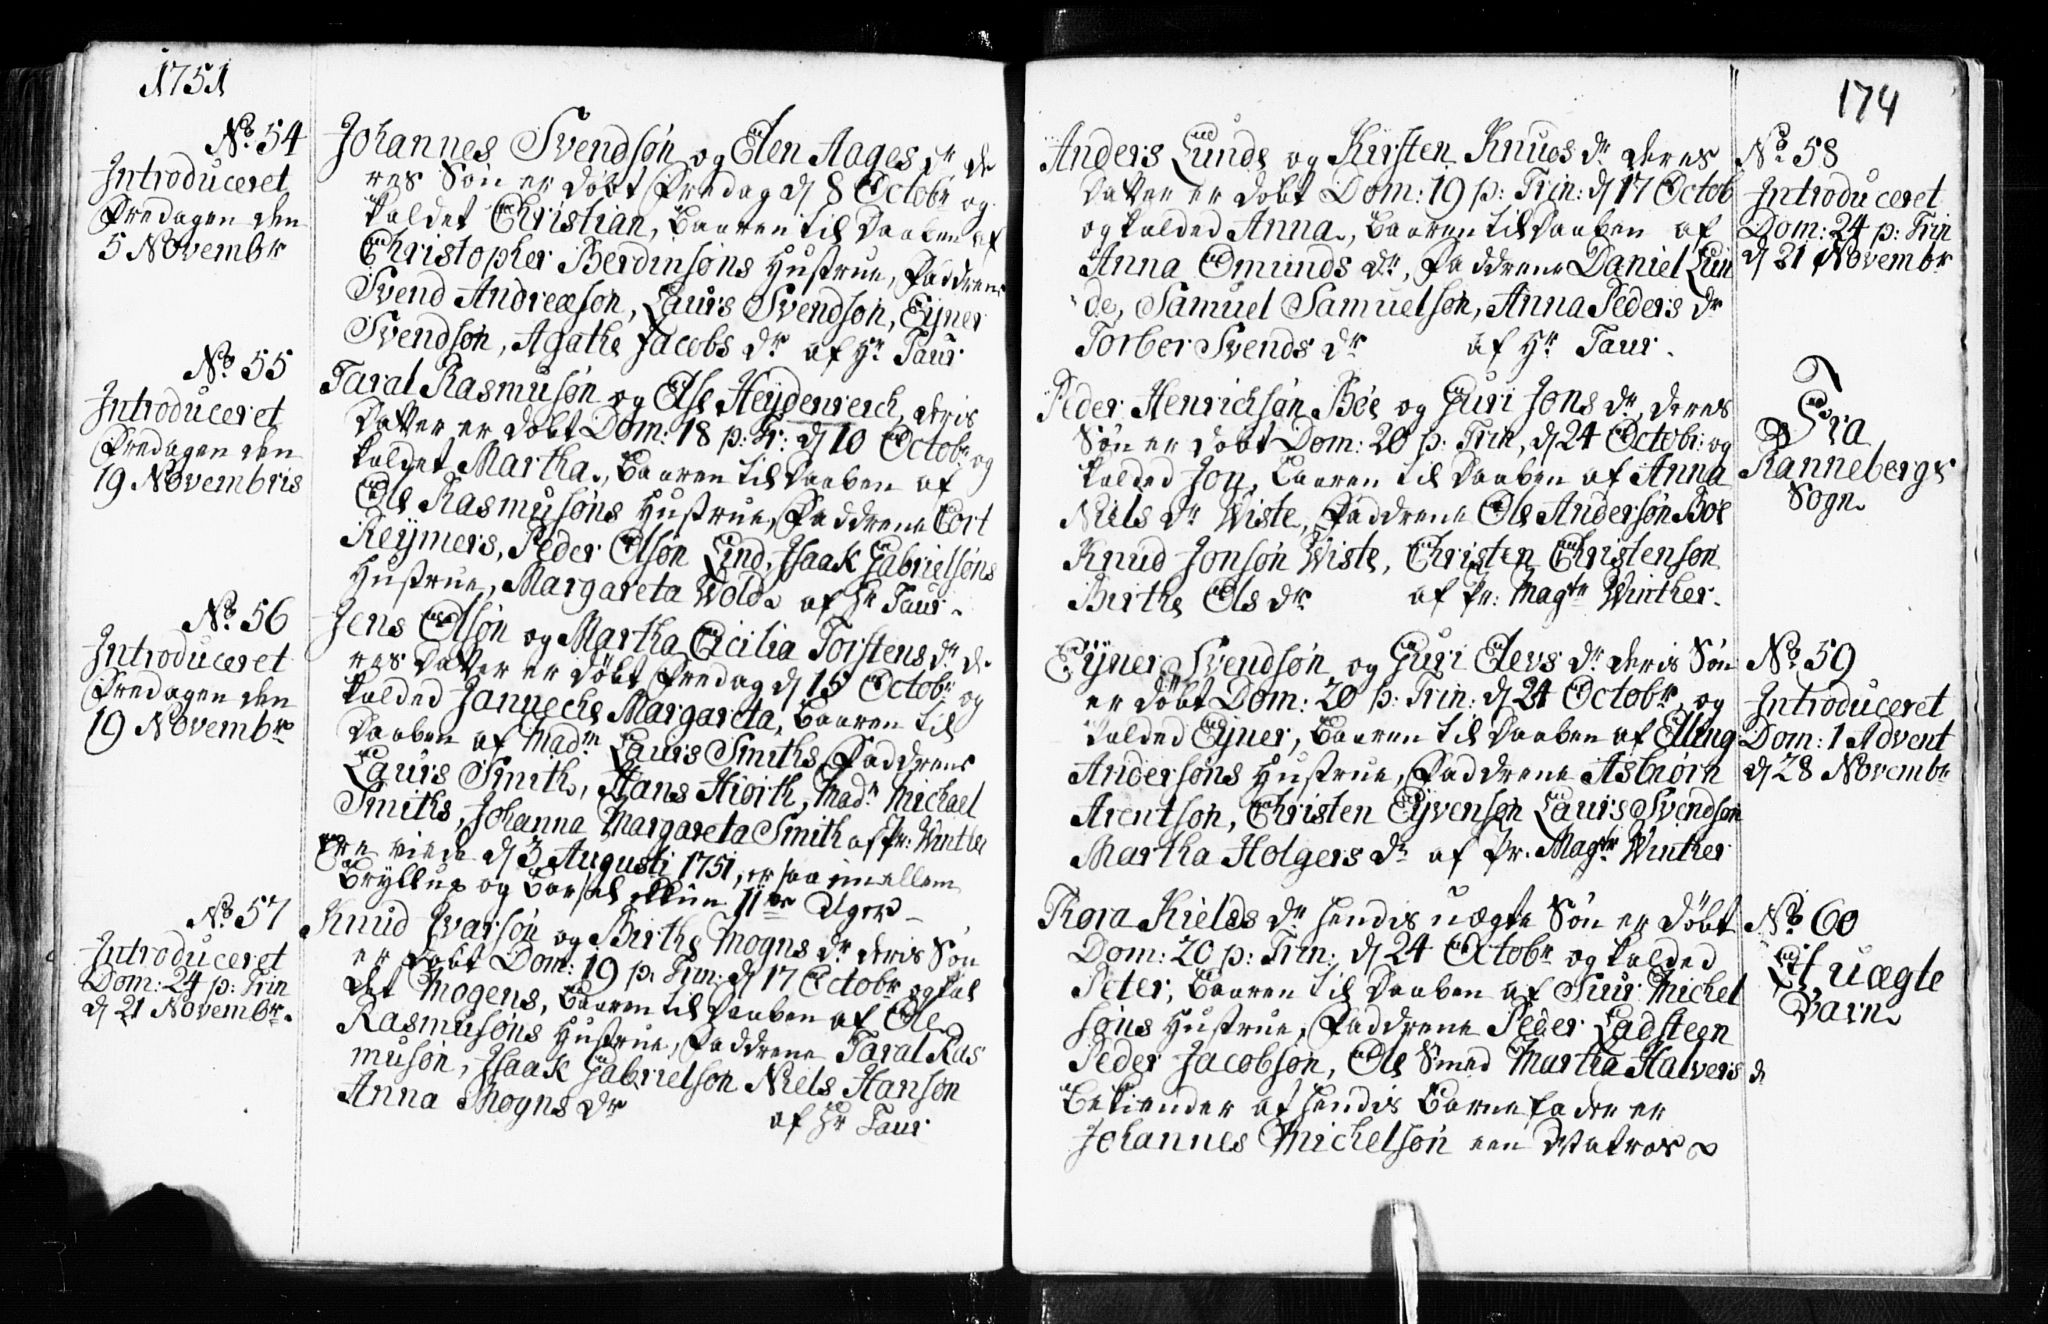 1751
No. 54
Introduceret
Fredagen den
5 Novembr
Johannes Svendsøn og Elen Aages dr de
res Søn er døbt Fredag d 8 Octobr og
kaldet Christian, Baaren til Daaben af
Christopher Berdinsøns Hustrue, Faddrene
Svend Andreæsøn, Laurs Svendsøn, Ejner
Svendsøn, Agathe Jacobs dr af Hr Taur
No. 55
Introduceret
Fredagen den
19 Novembris
Taral Rasmusøn og Else Heydenreich, deris
Datter er døbt Dom: 18 p: Tr: d 10 Octobr og
kaldet Martha, Baaren til Daaben af
Ole Rasmusøns Hustrue, Faddrene Cort
Reymers, Peder Olsøn Lind, Isaak Gabrielsøns
Hustrue, Margareta Wold af Hr Taur.
No. 56
Introduceret
Fredagen den
19 Novembr
Jens Olsøn og Martha Cicilia Torstens dr de
res Datter er døbt Fredag d 15 Octobr og
kalded Janneche Margareta, Baaren til
Daaben af Madm Laurs Smiths, Faddrene
Laurs Smith, Hans Hiorth, Madm Michael
Smiths, Johanna Margareta Smith af Pr: Winther
Ere viede d 3 Augusti 1751, er saa imellem
Bryllup og Barsel ikkun 11 Uger
No. 57
Introduceret
Dom: 24 p: Trin
d 21 Novembr.
Knud Ivarsøn og Birthe Mogns dr deris Søn
er døbt Dom: 19 p: Trin: d 17 Octobr og kal
det Mogens, Baaren til Daaben af Ole
Rasmusøns Hustrue, Faddrene Taral Ras
musøn, Isaak Gabrielsøn Niels Hansøn
Anna Mogns dr
af Hr Taur
174
Anders Lunde og Kirsten Knuds dr deres
Datter er døbt Dom: 19 p: Trin: d 17 Octob
og kalded Anna, Baaren til Daaben af
Anna Omunds dr, Faddrene Daniel Lun
de, Samuel Samuelsøn, Anna Peders dr
Torber Svends dr af Hr Taur.
No. 58
Introduceret
Dom: 24 p: Trin
d 21 Novembr
Peder Henrichsøn Bøe og Guri Jons dr, deres
Søn er døbt Dom: 20 p: Trin, d 24 Octobr: og
kalded Jon, Baaren til Daaben af Anna
Niels dr Wiste, Faddrene Ole Andersøn Bøe
Knud Jonsøn Wiste, Christen Christensøn
Birthe Ols dr af Pr: Magtr Winther.
Fra
Rannebergs
Sogn.
Ejner Svendsøn og Guri Elevs dr deris Søn
er døbt Dom: 20 p: Trin: d 24 Octobr, og
kalded Ejner, Baaren til Daaben af Elling
Andersøns Hustrue, Faddrene Asbiørn
Arentsøn, Christen Ejvensøn Laurs Svendsøn
Martha Holgers dr af Pr. Magtr Winther
No. 59
Introduceret
Dom: 1 Advent
d 28 Novembr
Thora Kields dr hendis uægte Søn er døbt
Dom: 20 p: Trin: d 24 Octobr og kalded
Peter, Baaren til Daaben af Siur Michel
søns Hustrue, Faddrene Peder Ladsteen
Peder Jacobsøn, Ole Smed Martha Halvers d
Bekiender at hendis Barnefader er
Johannes Michelsøn een Matros
No. 60
Et uægte
Barn.